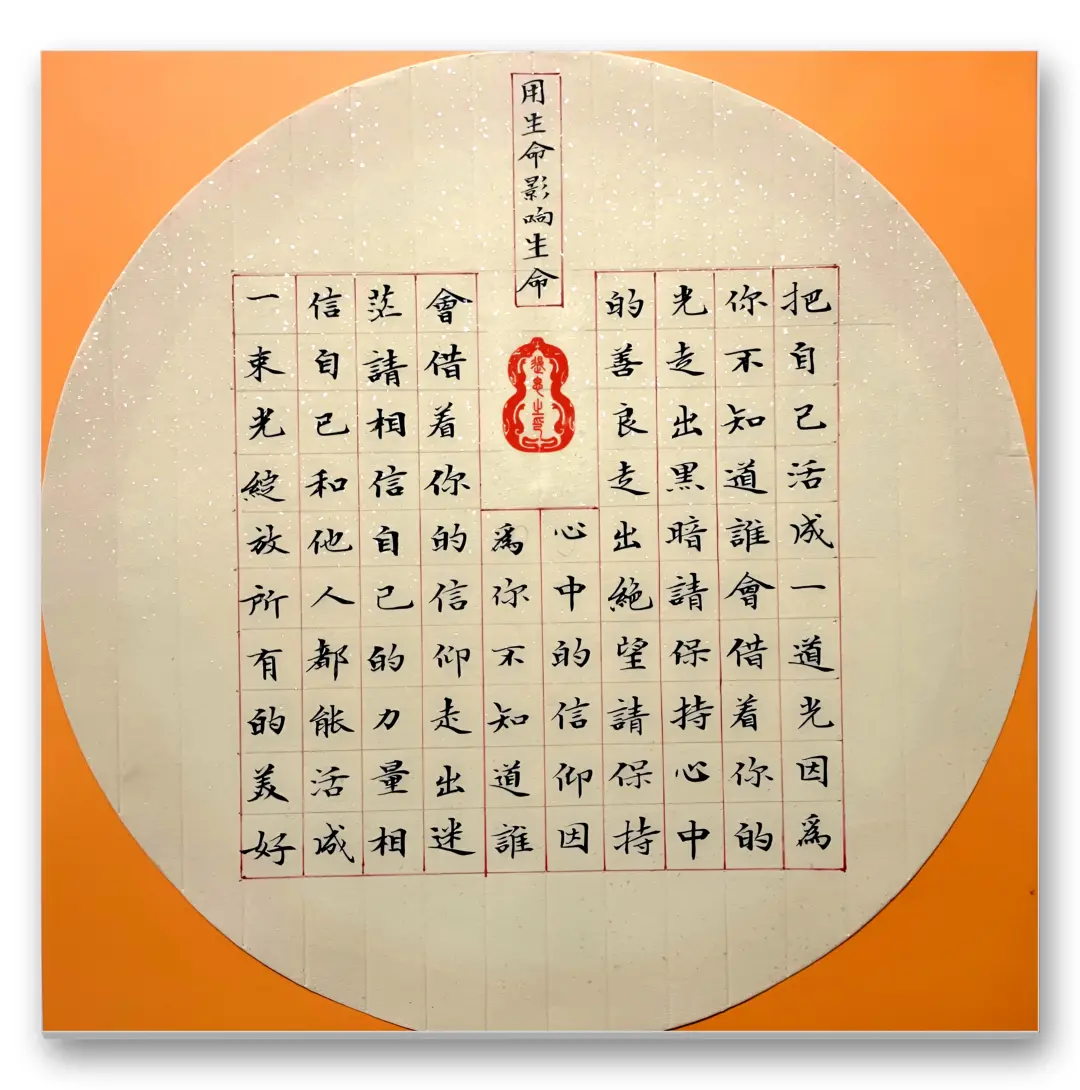 用生命影响生命
把自己活成一道光因爲
你不知道誰會借着你的
光走出黑暗請保持心中
的善良走出絕望請保持
心中的信仰因
爲你不知道誰
會借着你的信仰走出迷
茫請相信自己的力量相
信自己和他人都能活成
一束光綻放所有的美好